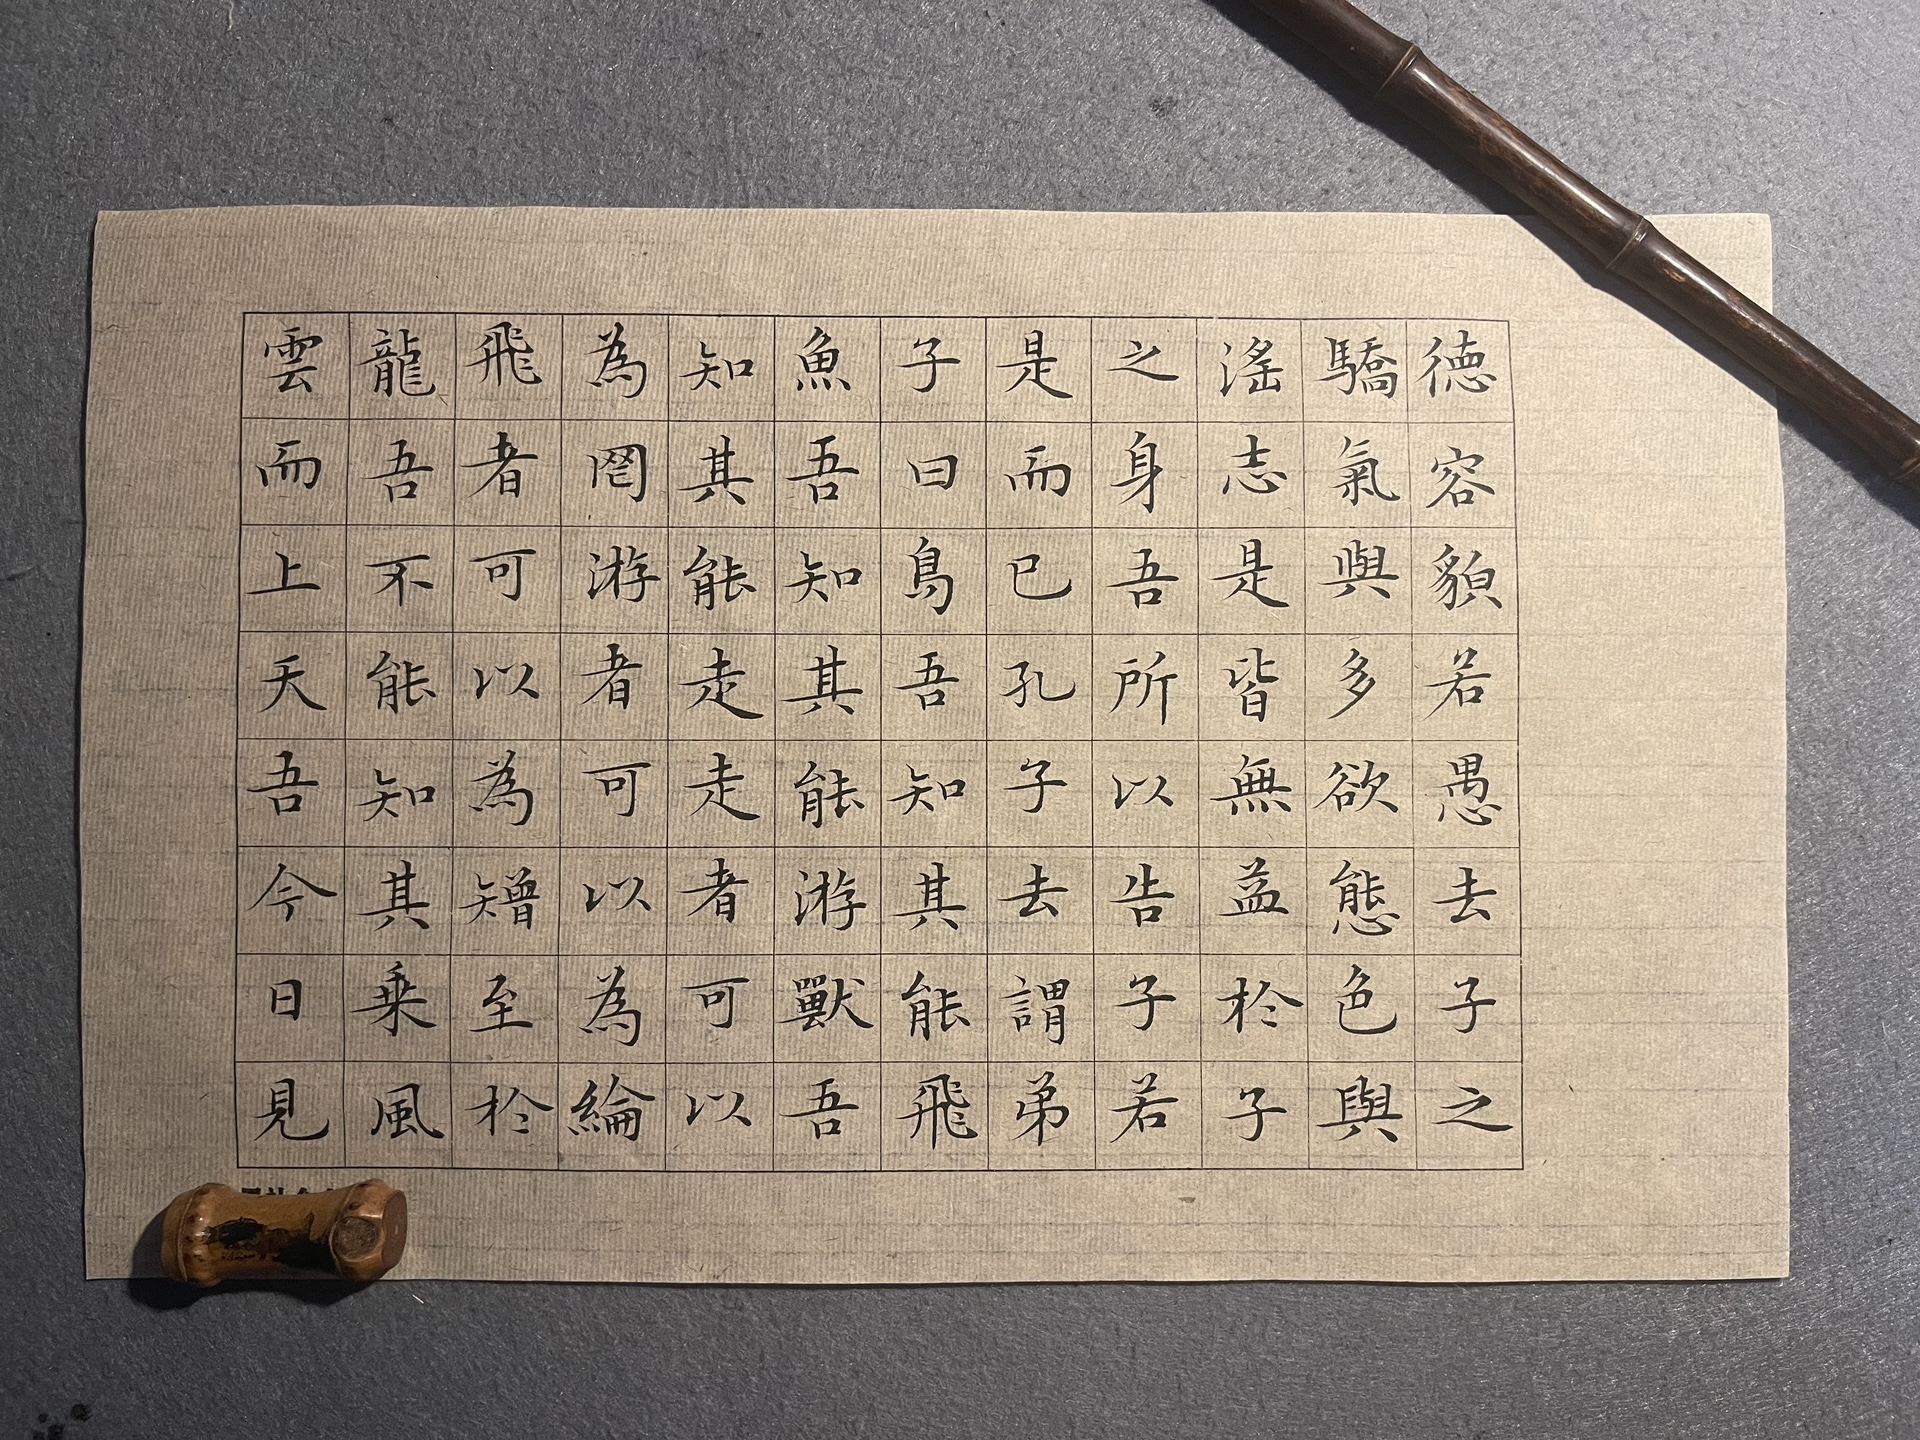 德容貌若愚去子之
驕氣與多欲態色與
滛志是皆無益於子
之身吾所以告子若
是而已孔子去謂弟
子曰鳥吾知其能飛
魚吾知其能游獸吾
知其能走走者可以
為罔游者可以為綸
飛者可以為矰至於
龍吾不能知其乘風
雲而上天吾今日見